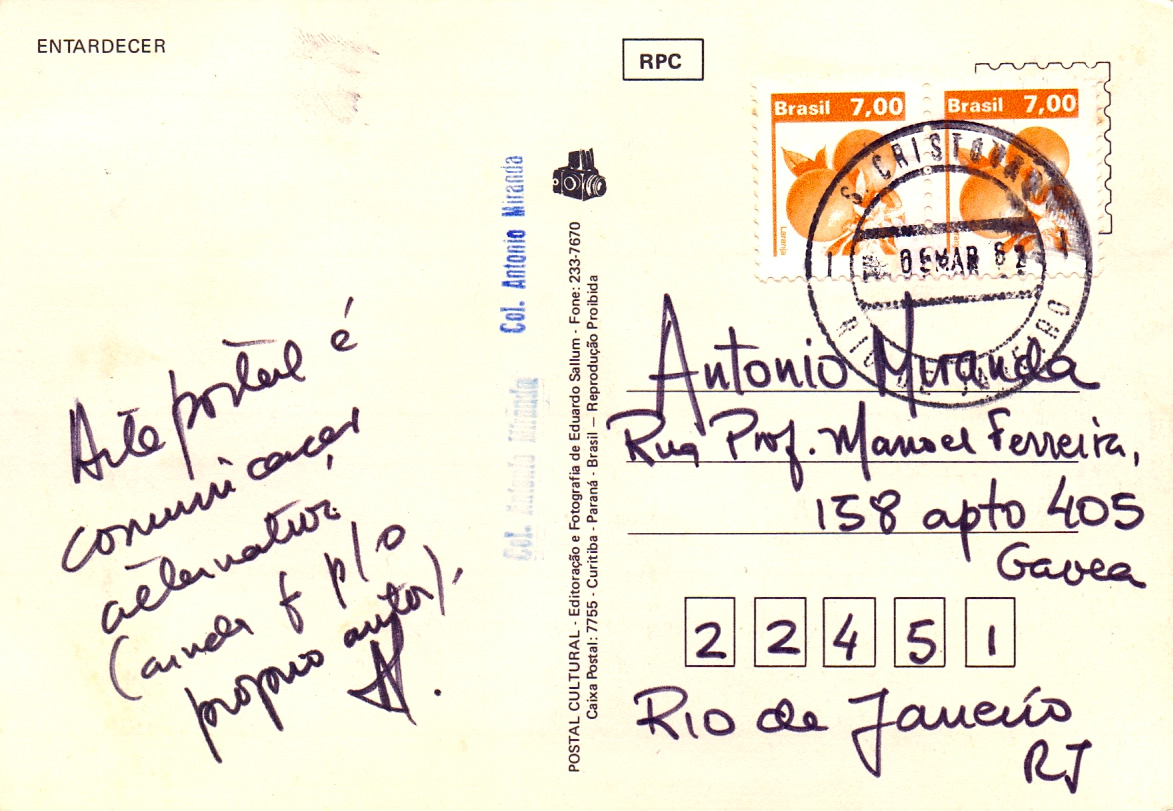 ENTARDECER
RPC
Brasil 7,00
Brasil 7,00
Laranja
S. CRISTOVAO
MAR 82
RIO DE JANEIRO
Col. Antonio Miranda
Col. Antonio Miranda
POSTAL CULTURAL - Editoração e Fotografia de Eduardo Sallum - Fone: 233-7670
Caixa Postal: 7755 - Curitiba - Paraná - Brasil — Reprodução Proibida
Arte postal é
comunicação
alternativa
(ainda q p/o
próprio autor).
A.
Antonio Miranda
Rua Prof. Manoel Ferreira,
158 apto 405
Gavea
22451
Rio de Janeiro
RJ